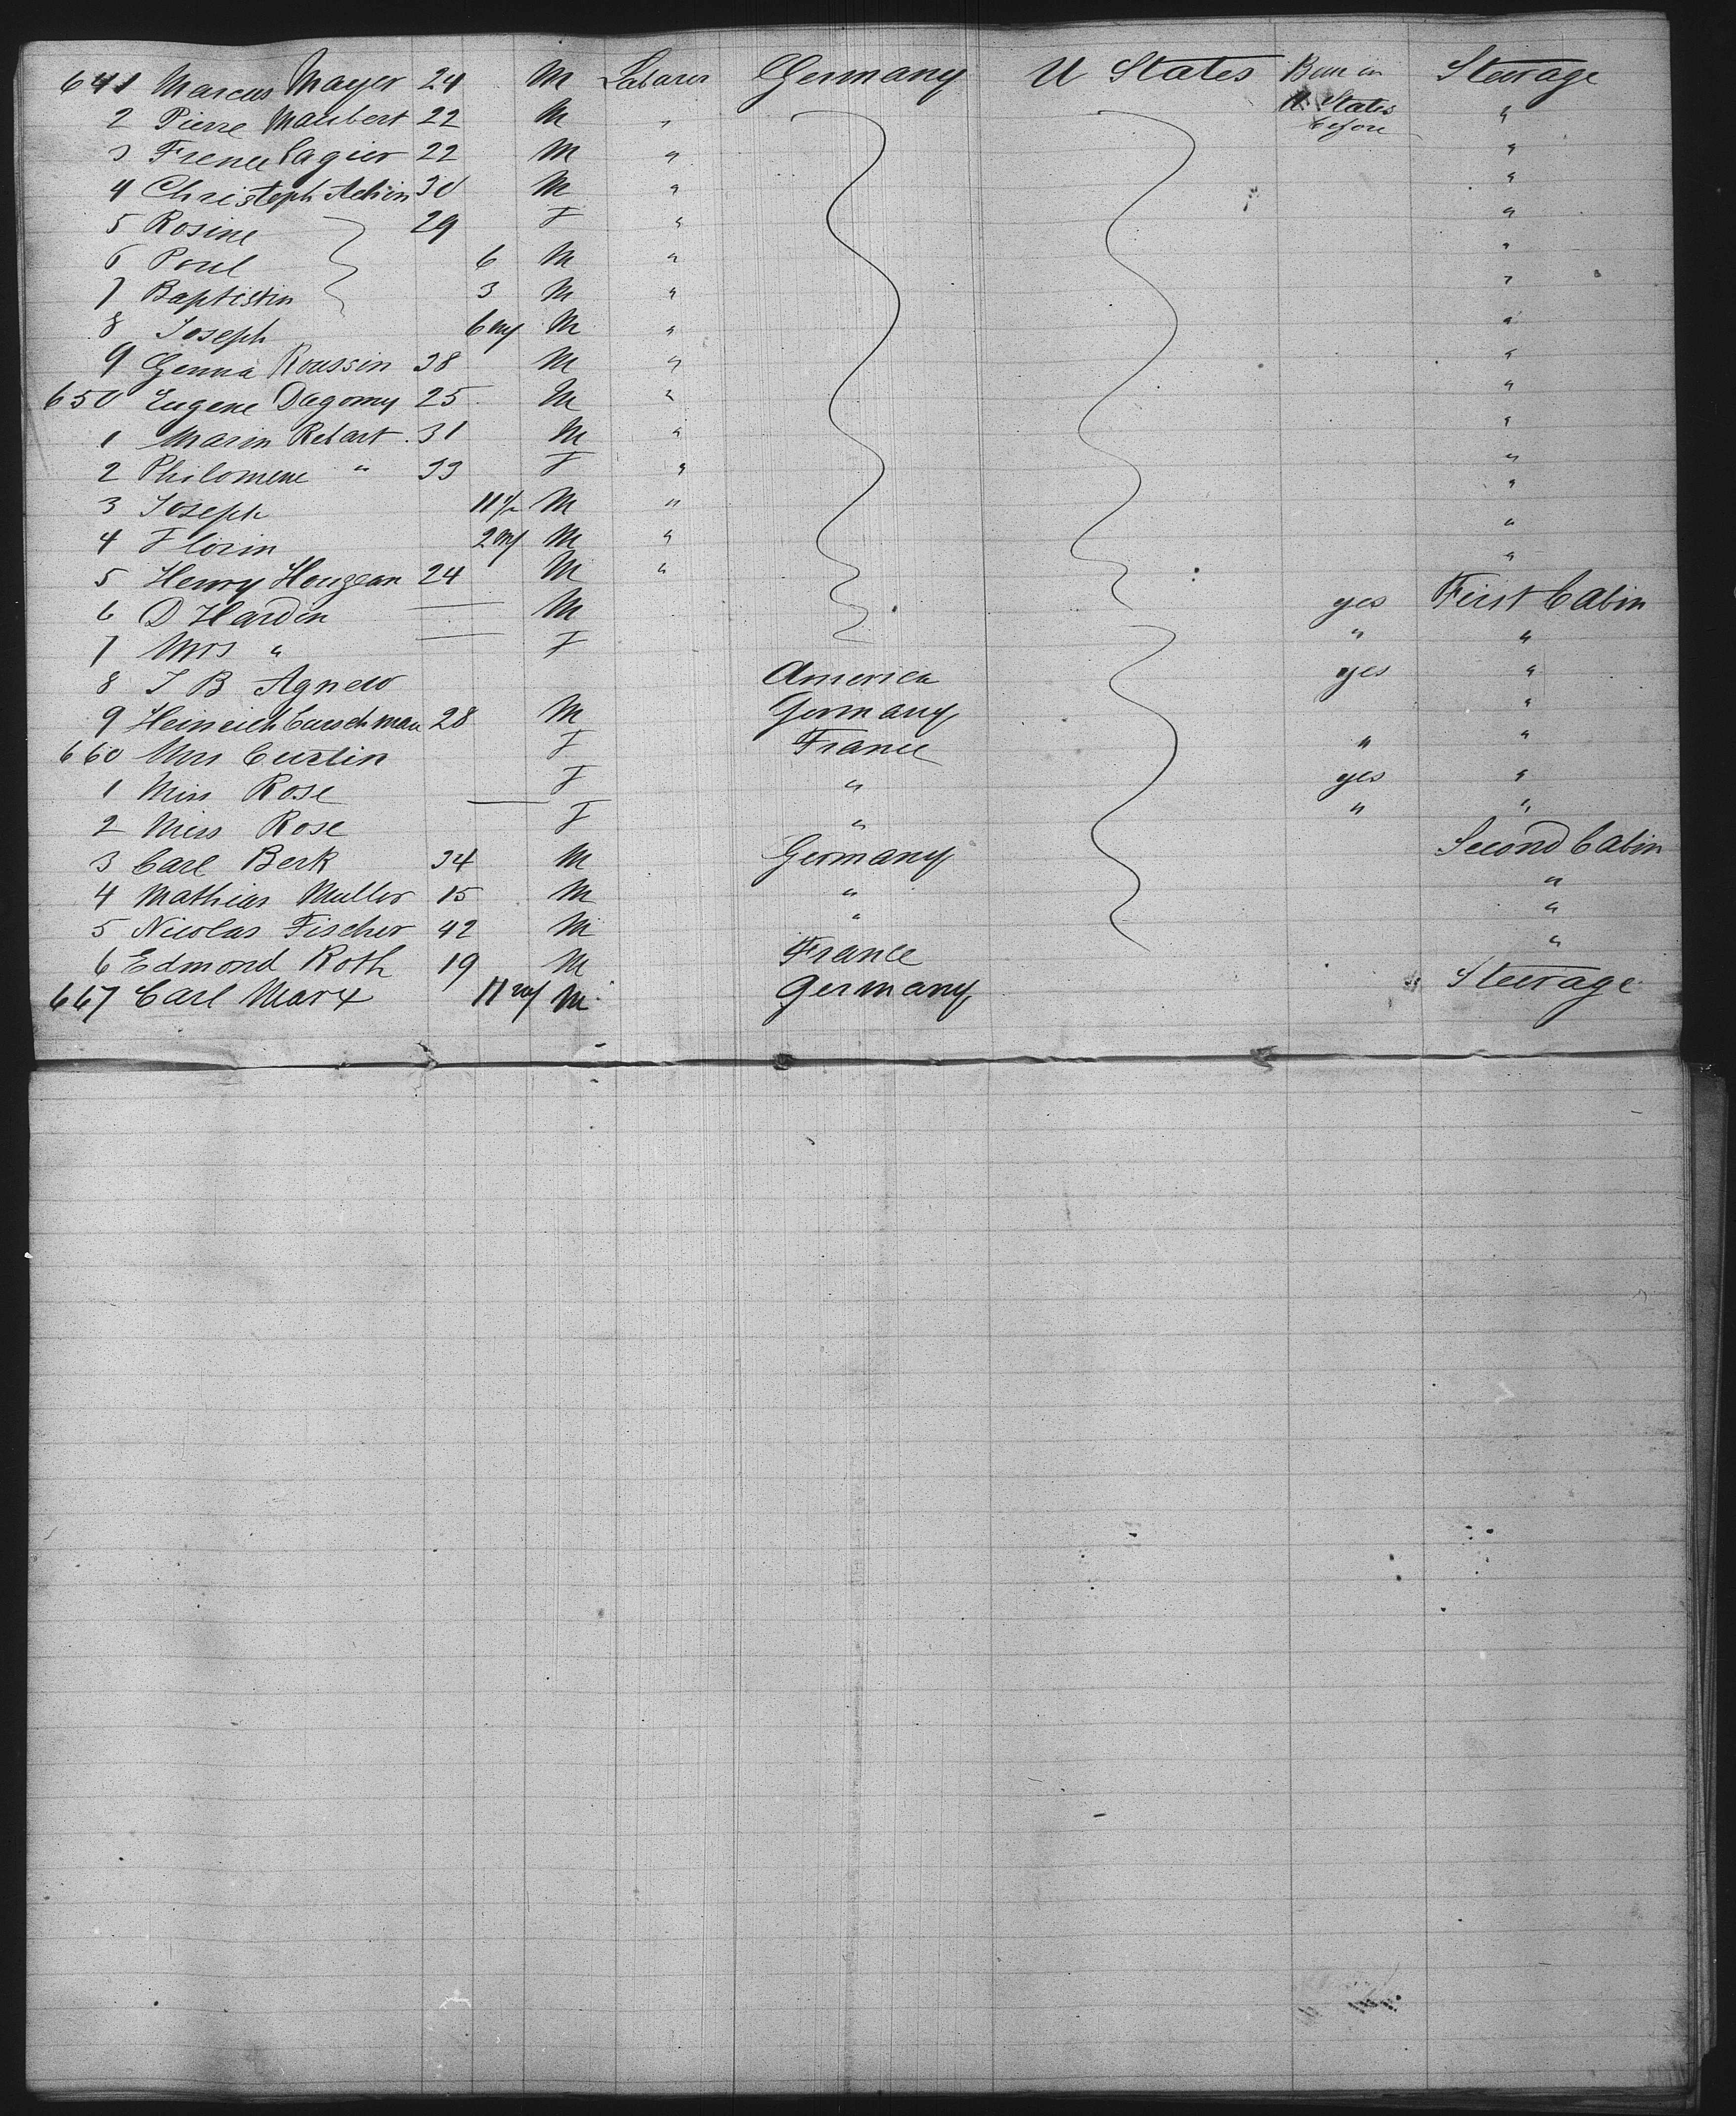 641 Marcus Mayer 24 M Laborer Germany U States Been in Steerage
2 Pierre Maubert 22 M " U. States "
before
3 Frence Pagier 22 M " "
4 Christoph Achin 30 M " "
5 Rosine 29 F " "
6 Poul 6 M " "
7 Baptistin 3 M " "
8 Joseph 6 my M " "
9 Genna Roussin 38 M " "
650 Eugene Dagomy 25 M " "
1 Marin Rebart 31 M " "
2 Philomene " 33 F " "
3 Joseph 11 1/2 M " "
4 Florin 2 my M " "
5 Henry Houzean 24 M " "
6 D Hardin — M yes First Cabin
7 Mrs " — F " "
8 J B Agnew America yes "
9 Heinrich Curschman 28 M Germany "
660 Mrs Curtin F France " "
1 Miss Rose F " yes "
2 Miss Rose — F " " "
3 Carl Berk 34 M Germany Second Cabin
4 Mathias Muller 15 M " "
5 Nicolas Fischer 42 M " "
6 Edmond Roth 19 M France "
667 Carl Marx 11 my M Germany Steerage